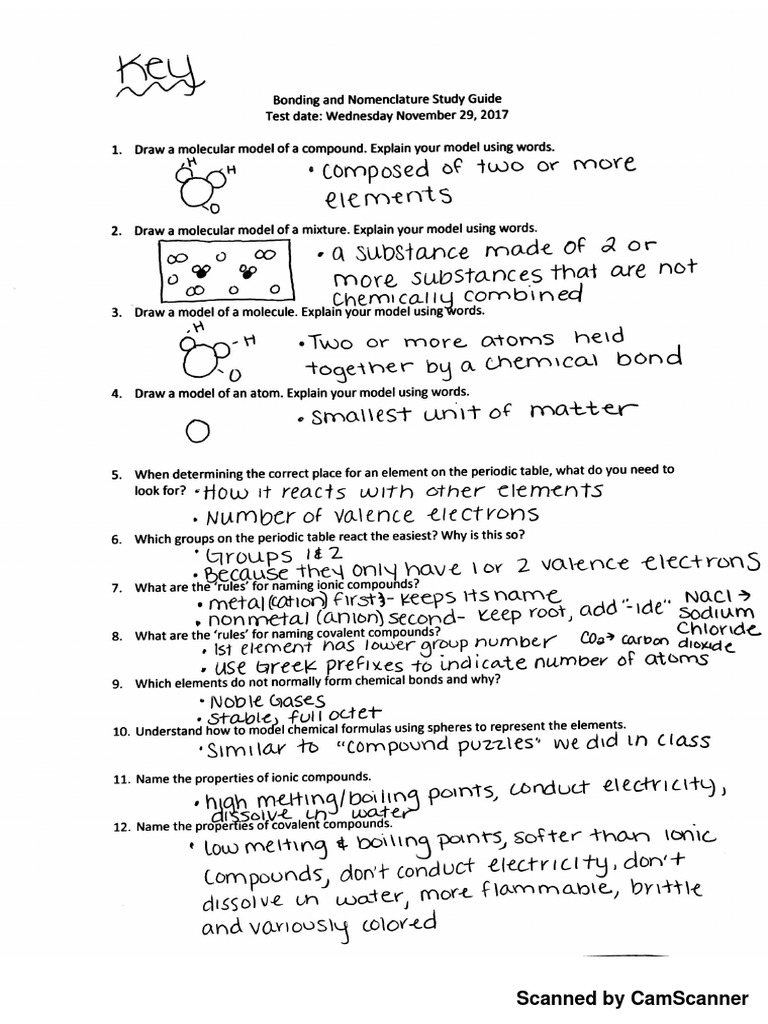 Key
Bonding and Nomenclature Study Guide
Test date: Wednesday November 29, 2017
1. Draw a molecular model of a compound. Explain your model using words.
H
H
O
• composed of two or more
elements
2. Draw a molecular model of a mixture. Explain your model using words.
• a substance made of 2 or
more substances that are not
chemically combined
3. Draw a model of a molecule. Explain your model using words.
H
H
O
• Two or more atoms held
together by a chemical bond
4. Draw a model of an atom. Explain your model using words.
• smallest unit of matter
5. When determining the correct place for an element on the periodic table, what do you need to
look for? • How it reacts with other elements
• Number of valence electrons
6. Which groups on the periodic table react the easiest? Why is this so?
• Groups 1 & 2
• Because they only have 1 or 2 valence electrons
7. What are the 'rules' for naming ionic compounds?
• metal (cation) first - keeps its name
• nonmetal (anion) second - keep root, add "-ide"
NaCl →
sodium
chloride
8. What are the 'rules' for naming covalent compounds?
• 1st element has lower group number
CO₂ → carbon
dioxide
• use Greek prefixes to indicate number of atoms
9. Which elements do not normally form chemical bonds and why?
• Noble Gases
• stable, full octet
10. Understand how to model chemical formulas using spheres to represent the elements.
• similar to "compound puzzles" we did in class
11. Name the properties of ionic compounds.
• high melting/boiling points, conduct electricity,
dissolve in water
12. Name the properties of covalent compounds.
• low melting & boiling points, softer than ionic
compounds, don't conduct electricity, don't
dissolve in water, more flammable, brittle
and variously colored
Scanned by CamScanner